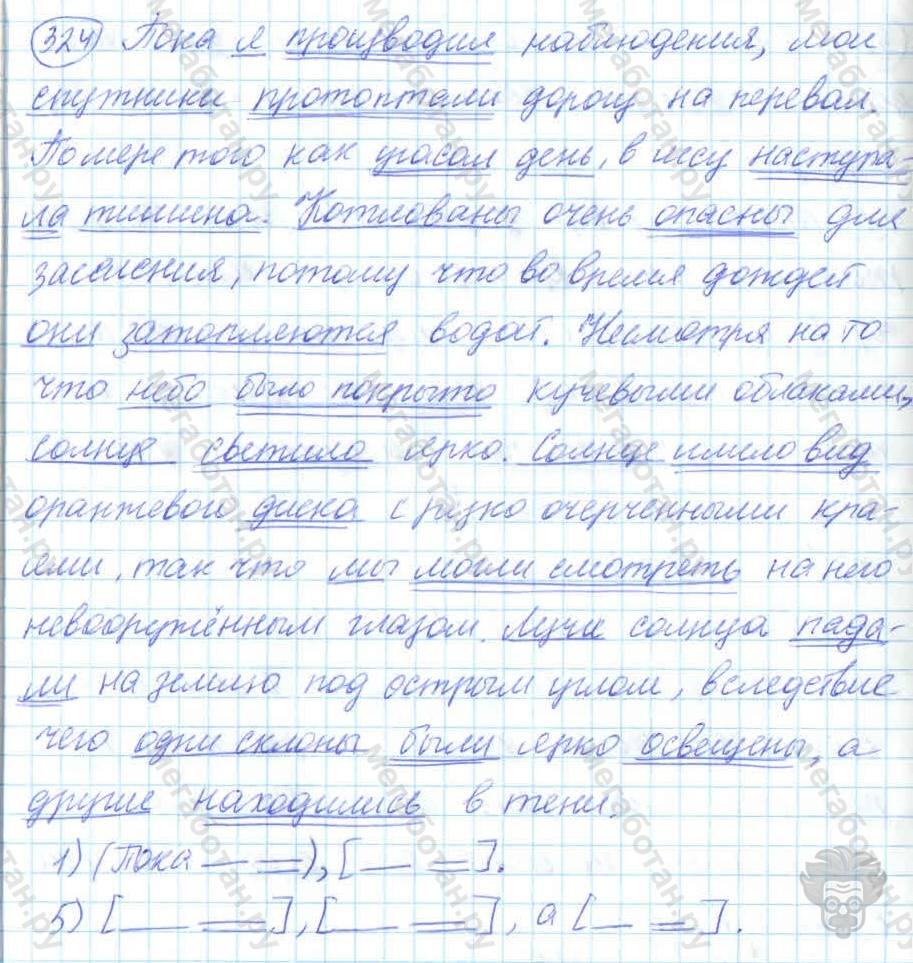 324 Пока я производил наблюдения, мои
спутники протоптали дорогу на перевал.
По мере того как угасал день, в лесу наступа-
ла тишина. Котлованы очень опасны для
заселения, потому что во время дождей
они затопляются водой. Несмотря на то
что небо было покрыто кучевыми облаками,
солнце светило ярко. Солнце имело вид
оранжевого диска с резко очерченными кра-
ями, так что мы могли смотреть на него
невооружённым глазом. Лучи солнца пада-
ли на землю под острым углом, вследствие
чего одни склоны были ярко освещены, а
другие находились в тени.
1) (Пока — =), [— =].
5) [— =], [— =], а [— =].
мегаботан.ру